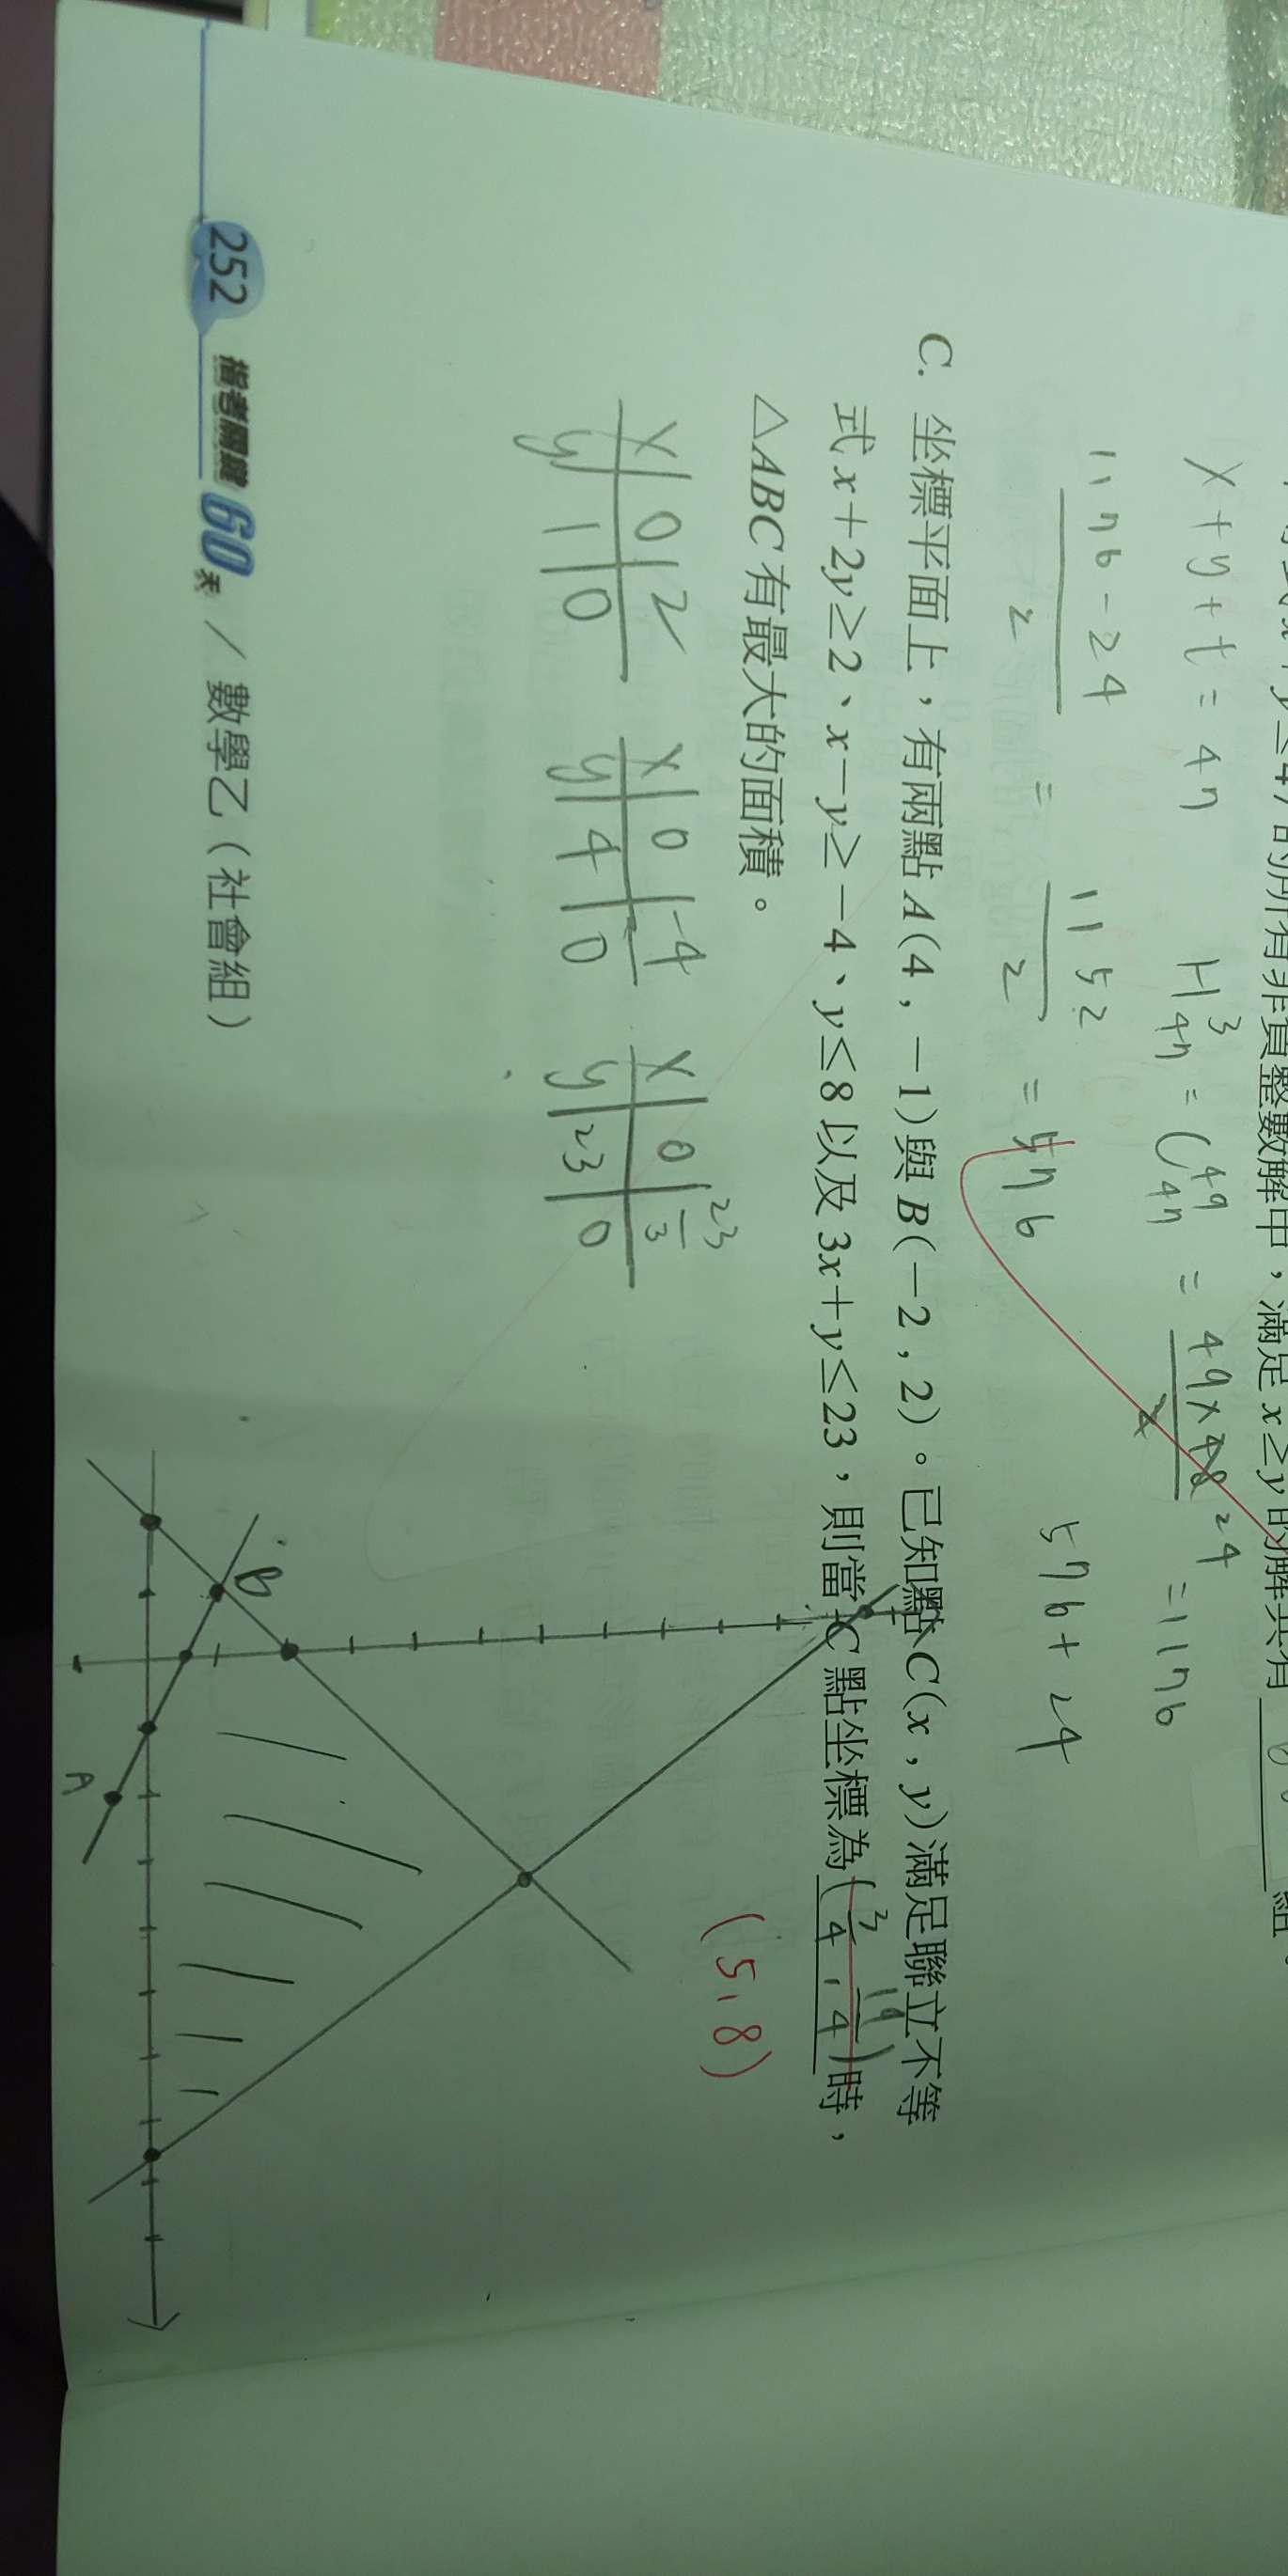 x+y+t=47
H³₄₇=C⁴⁹₄₇=49×48/2 24 =1176
1176-24/2 = 1152/2 = 576
576+24
C. 坐標平面上,有兩點A(4,-1)與B(-2,2)。已知點C(x,y)滿足聯立不等
式x+2y≥2、x-y≥-4、y≤8以及3x+y≤23,則當C點坐標為(3/4,19/4)時,
(5,8)
△ABC有最大的面積。
x 0 2
y 1 0
x 0 -4
y 4 0
x 0 23/3
y 23 0
B
A
252 指考關鍵60天/數學乙(社會組)